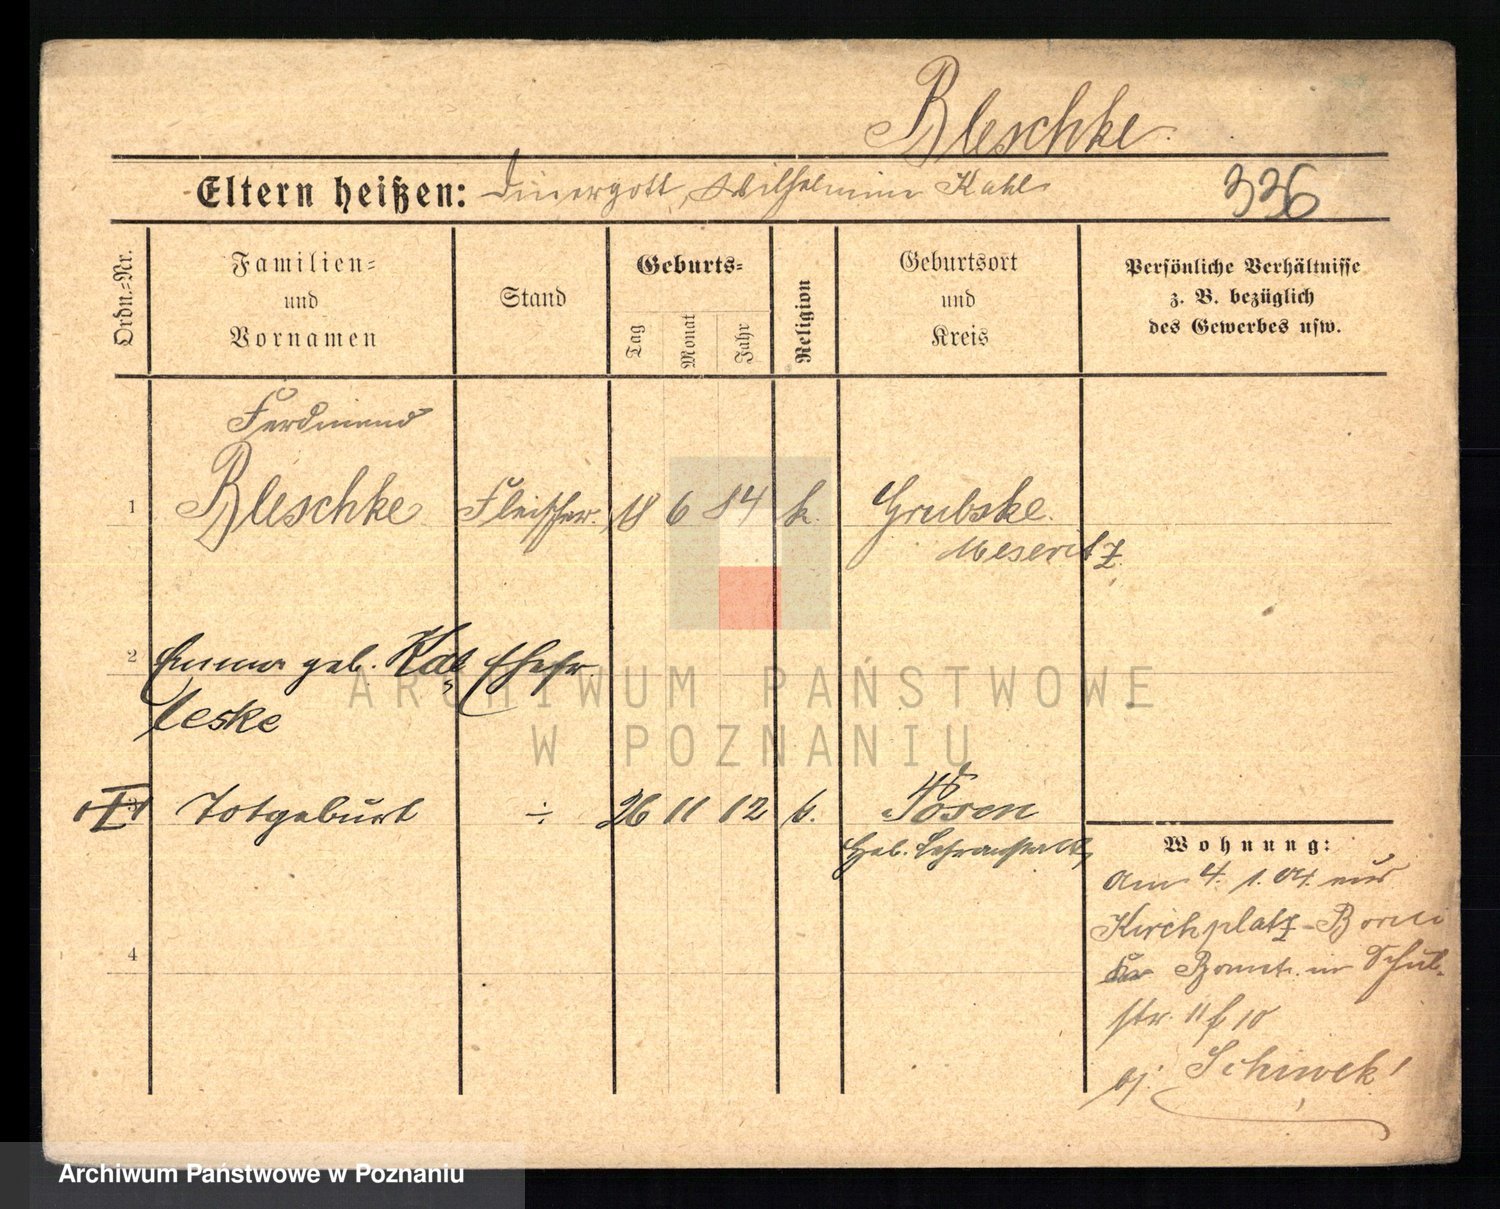 Bleschke
Eltern heißen: Wilhelmine Kahl 336
Ordn.=Nr.
Familien=
und
Vornamen
Stand
Geburts=
Tag
Monat
Jahr
Religion
Geburtsort
und
Kreis
Persönliche Verhältnisse
z. B. bezüglich
des Gewerbes usw.
Ferdinand
1 Bleschke Fleischer. 18 6 84 k. Grubske
Meseritz
2 Emma geb. Kat Ehefr.
leske
3 Totgeburt ÷ 26 11 12 Posen
Heb. Lehranstalt
Wohnung:
Am 4. 1. 04. aus
Kirchplatz
4 in Schul-
str. 11 b 10
bj. Schiwek
ARCHIWUM PAŃSTWOWE
W POZNANIU
Archiwum Państwowe w Poznaniu